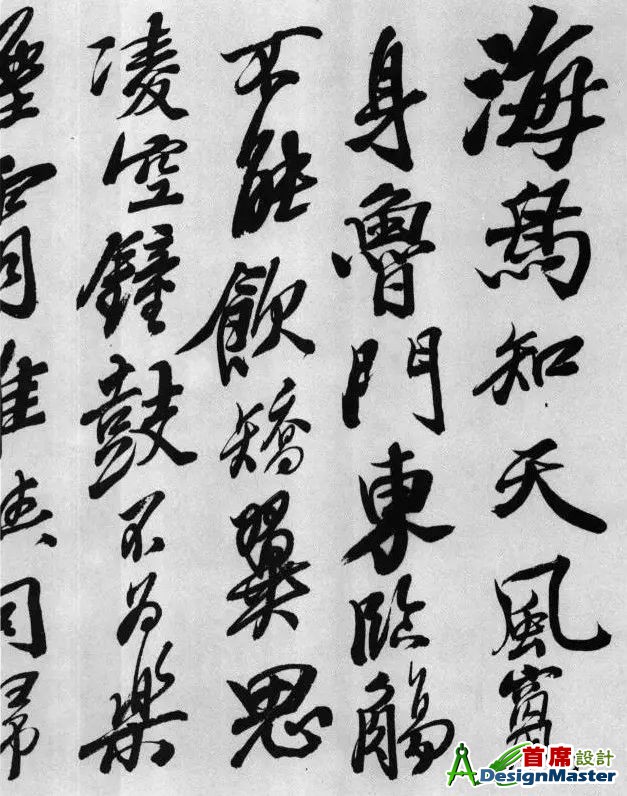 海鳥知天風竄
身魯門東臨觴
不能飲矯翼思
凌空鐘鼓不為樂
首席設計
DesignMaster